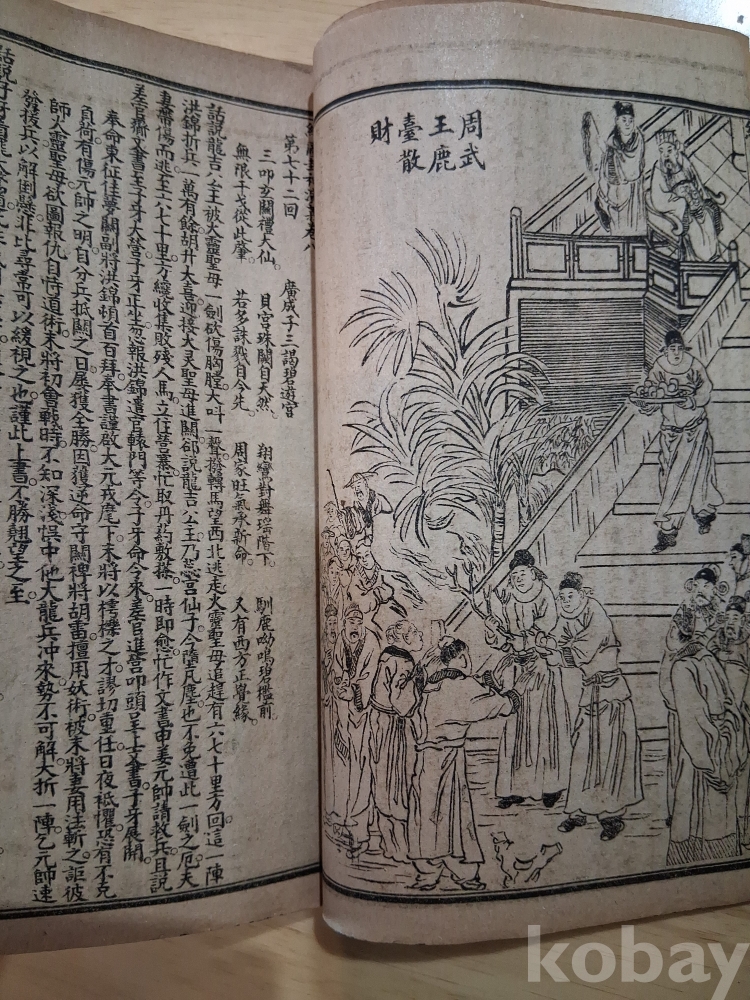 周武
王鹿
臺散
財
第七十二回　廣成子三謁碧遊宮
三叩玄關禮大仙。　貝宮珠闕自天然。　翔鸞對舞瑤階下。　馴鹿呦鳴碧檻前
無限干戈從此肇　若多誅戮自今先　周家旺氣承新命。　又有西方正覺緣。
話說龍吉公主被火靈聖母一劍砍傷胸膛大叫一聲撥轉馬望西北逃走火靈聖母追趕有六七十里方回這一陣
洪錦折兵一萬有餘胡升大喜迎接火灵聖母進關卻說龍吉公主乃蕊宮仙子今墮凡塵也不免遭此一劍之厄夫
妻帶傷而逃至六七十里方纔收集敗殘人馬立住營寨忙取丹药敷搽一時即愈忙作文書申姜元帥請救兵且說
差官賫文書至子牙大營子牙正坐忽報洪錦遣官轅門等令子牙命令來差官進營叩頭呈上文書子牙展開
奉命東征佳夢關副將洪錦頓首百拜奉書謹啟大元戎麾下末將以樗櫟之才謬切重任日夜祗懼恐有不克
負荷有傷元帥之明自分兵抵關之日屡獲全勝因獲逆命守關裨將胡雷擅用妖術被末將妻用法斬之詎彼
師火靈聖母欲圖報仇自恃道術末將初會戰時不知深淺悞中他火龍兵冲來勢不可解大折一陣乞元帥速
發援兵以解倒懸非比尋常可以緩視之也謹此上書不勝翹望之至
kobay